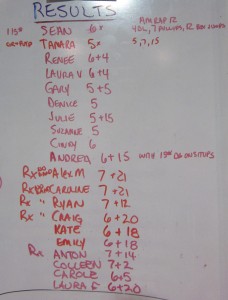 RESULTS
AMRAP 12
115# SEAN 6*
TAMARA 5* 5, 7, 15
RENEE 6+4
LAURA V 6+4
GARY 5+5
DENICE 5
JULIE 5+15
SUZANNE 5
CINDY 6
ANDREA 6+15 WITH
Rx ALEM 7+21
Rx CAROLINE 7+21
Rx " RYAN 7+12
Rx " CRAIG 6+20
KATE 6+18
EMILY 6+18
Rx ANTON 7+14
COLLEEN 7+2
CAROLE 6+5
LAURA F 6+20